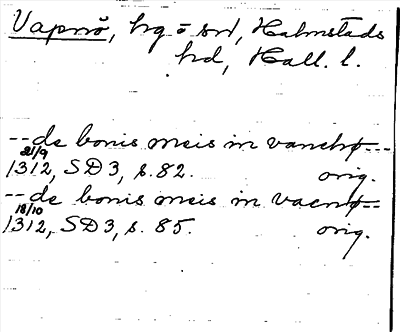 Vapnö, hg o sn, Halmstads
hd, Hall. l.
-- de bonis meis in vanehø---
21/9
1312, SD 3, s. 82. orig.
-- de bonis meis in vaenø--
18/10
1312, SD 3, s. 85. orig.